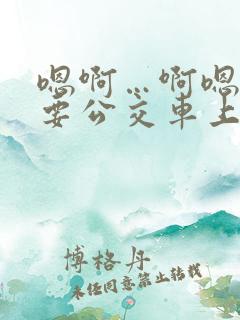 嗯啊…啊嗯
要公交车上
博格丹
未经同意禁止转载